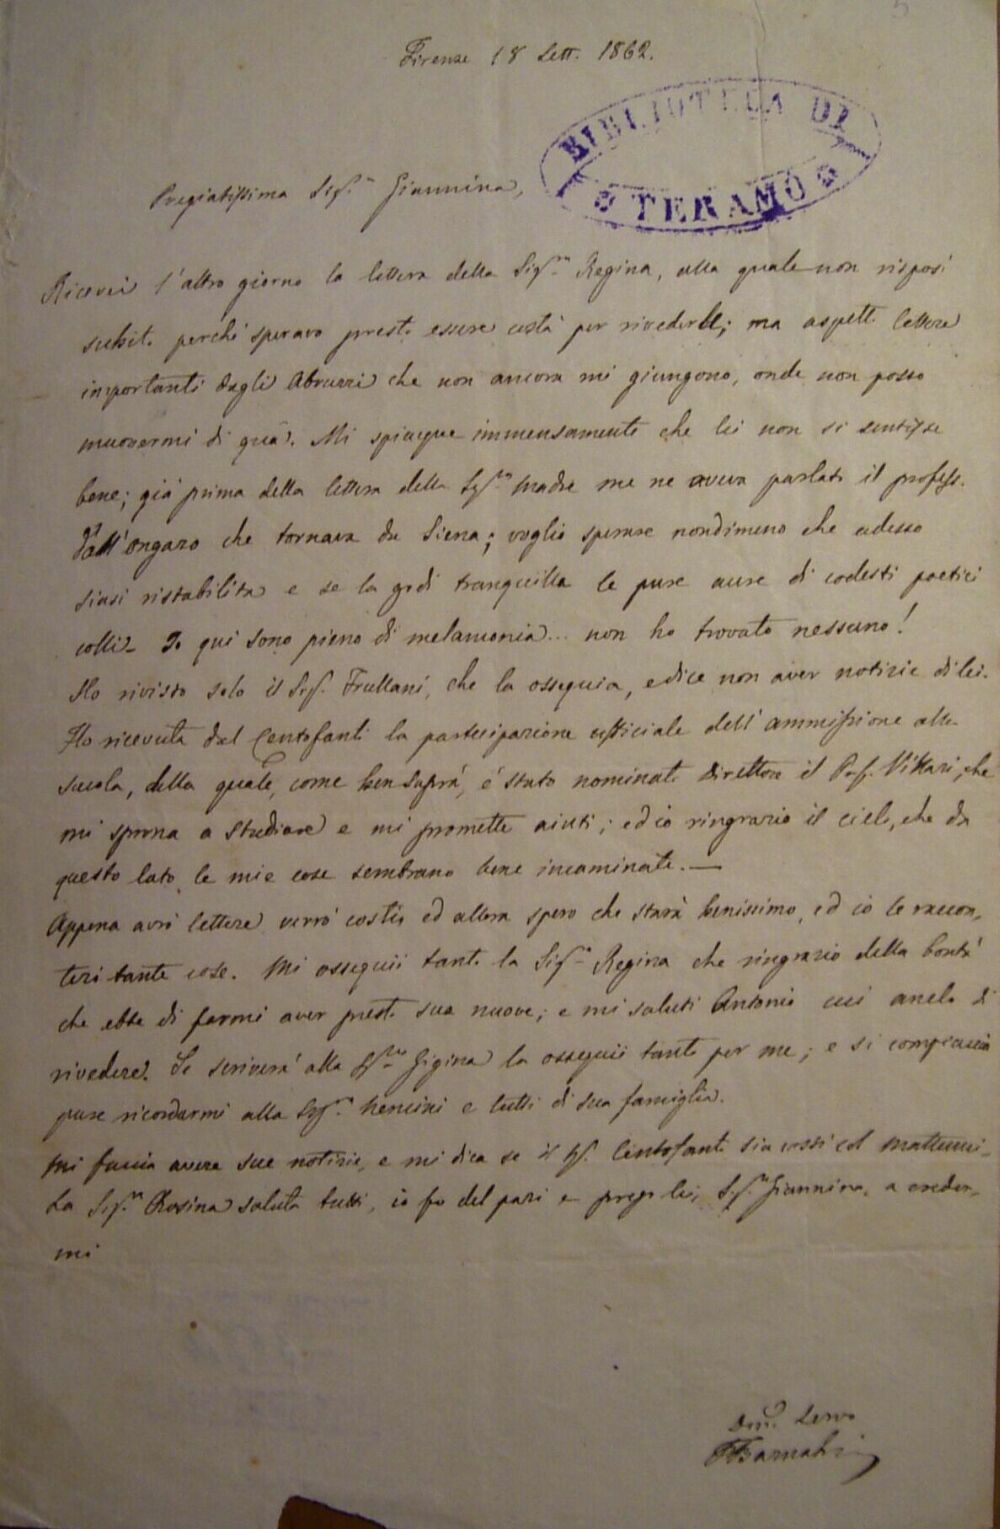 Firenze 18 Sett. 1862.
BIBLIOTECA DI
TERAMO
Pregiatissima Sig.ra Giannina,
Ricevei l'altro giorno la lettera della Sig.ra Regina, alla quale non risposi
subito perché speravo presto essere costà per rivederle; ma aspetto lettere
importanti dagli Abruzzi che non ancora mi giungono, onde non posso
muovermi di qua. Mi spiacque immensamente che lei non si sentisse
bene; già prima della lettera della Sig.ra Madre me ne aveva parlato il profess.
Dall'Ongaro che tornava da Siena; voglio sperare nondimeno che adesso
siasi ristabilita e se la godi tranquilla le pure aure di codesti poetici
colli. Io qui sono pieno di melanconia... non ho trovato nessuno!
Ho rivisto solo il Sig. Frullani, che la ossequia, e dice non aver notizie di lei.
Ho ricevuta dal Centofanti la partecipazione ufficiale dell'ammissione alla
scuola, della quale, come ben saprà, è stato nominato Direttore il Prof. Villari, che
mi sprona a studiare e mi promette aiuti; ed io ringrazio il cielo, che da
questo lato le mie cose sembrano bene incaminate. —
Appena avrò lettere verrò costà, ed allora spero che starà benissimo, ed io le raccon-
terò tante cose. Mi ossequii tanto la Sig.ra Regina che ringrazio della bontà
che ebbe di farmi aver presto sue nuove; e mi saluti Antonio cui anelo di
rivedere. Se scriverà alla Sig.ra Gigina la ossequii tanto per me; e si compiaccia
pure ricordarmi alla Sig.ra Nencini e tutti di sua famiglia.
Mi faccia avere sue notizie, e mi dica se il Centofanti sia costì col
La Sig.ra Rosina saluta tutti, io fo del pari e prego lei, Sig.ra Giannina, a creder-
mi
Dev. Servo
FBarnabei